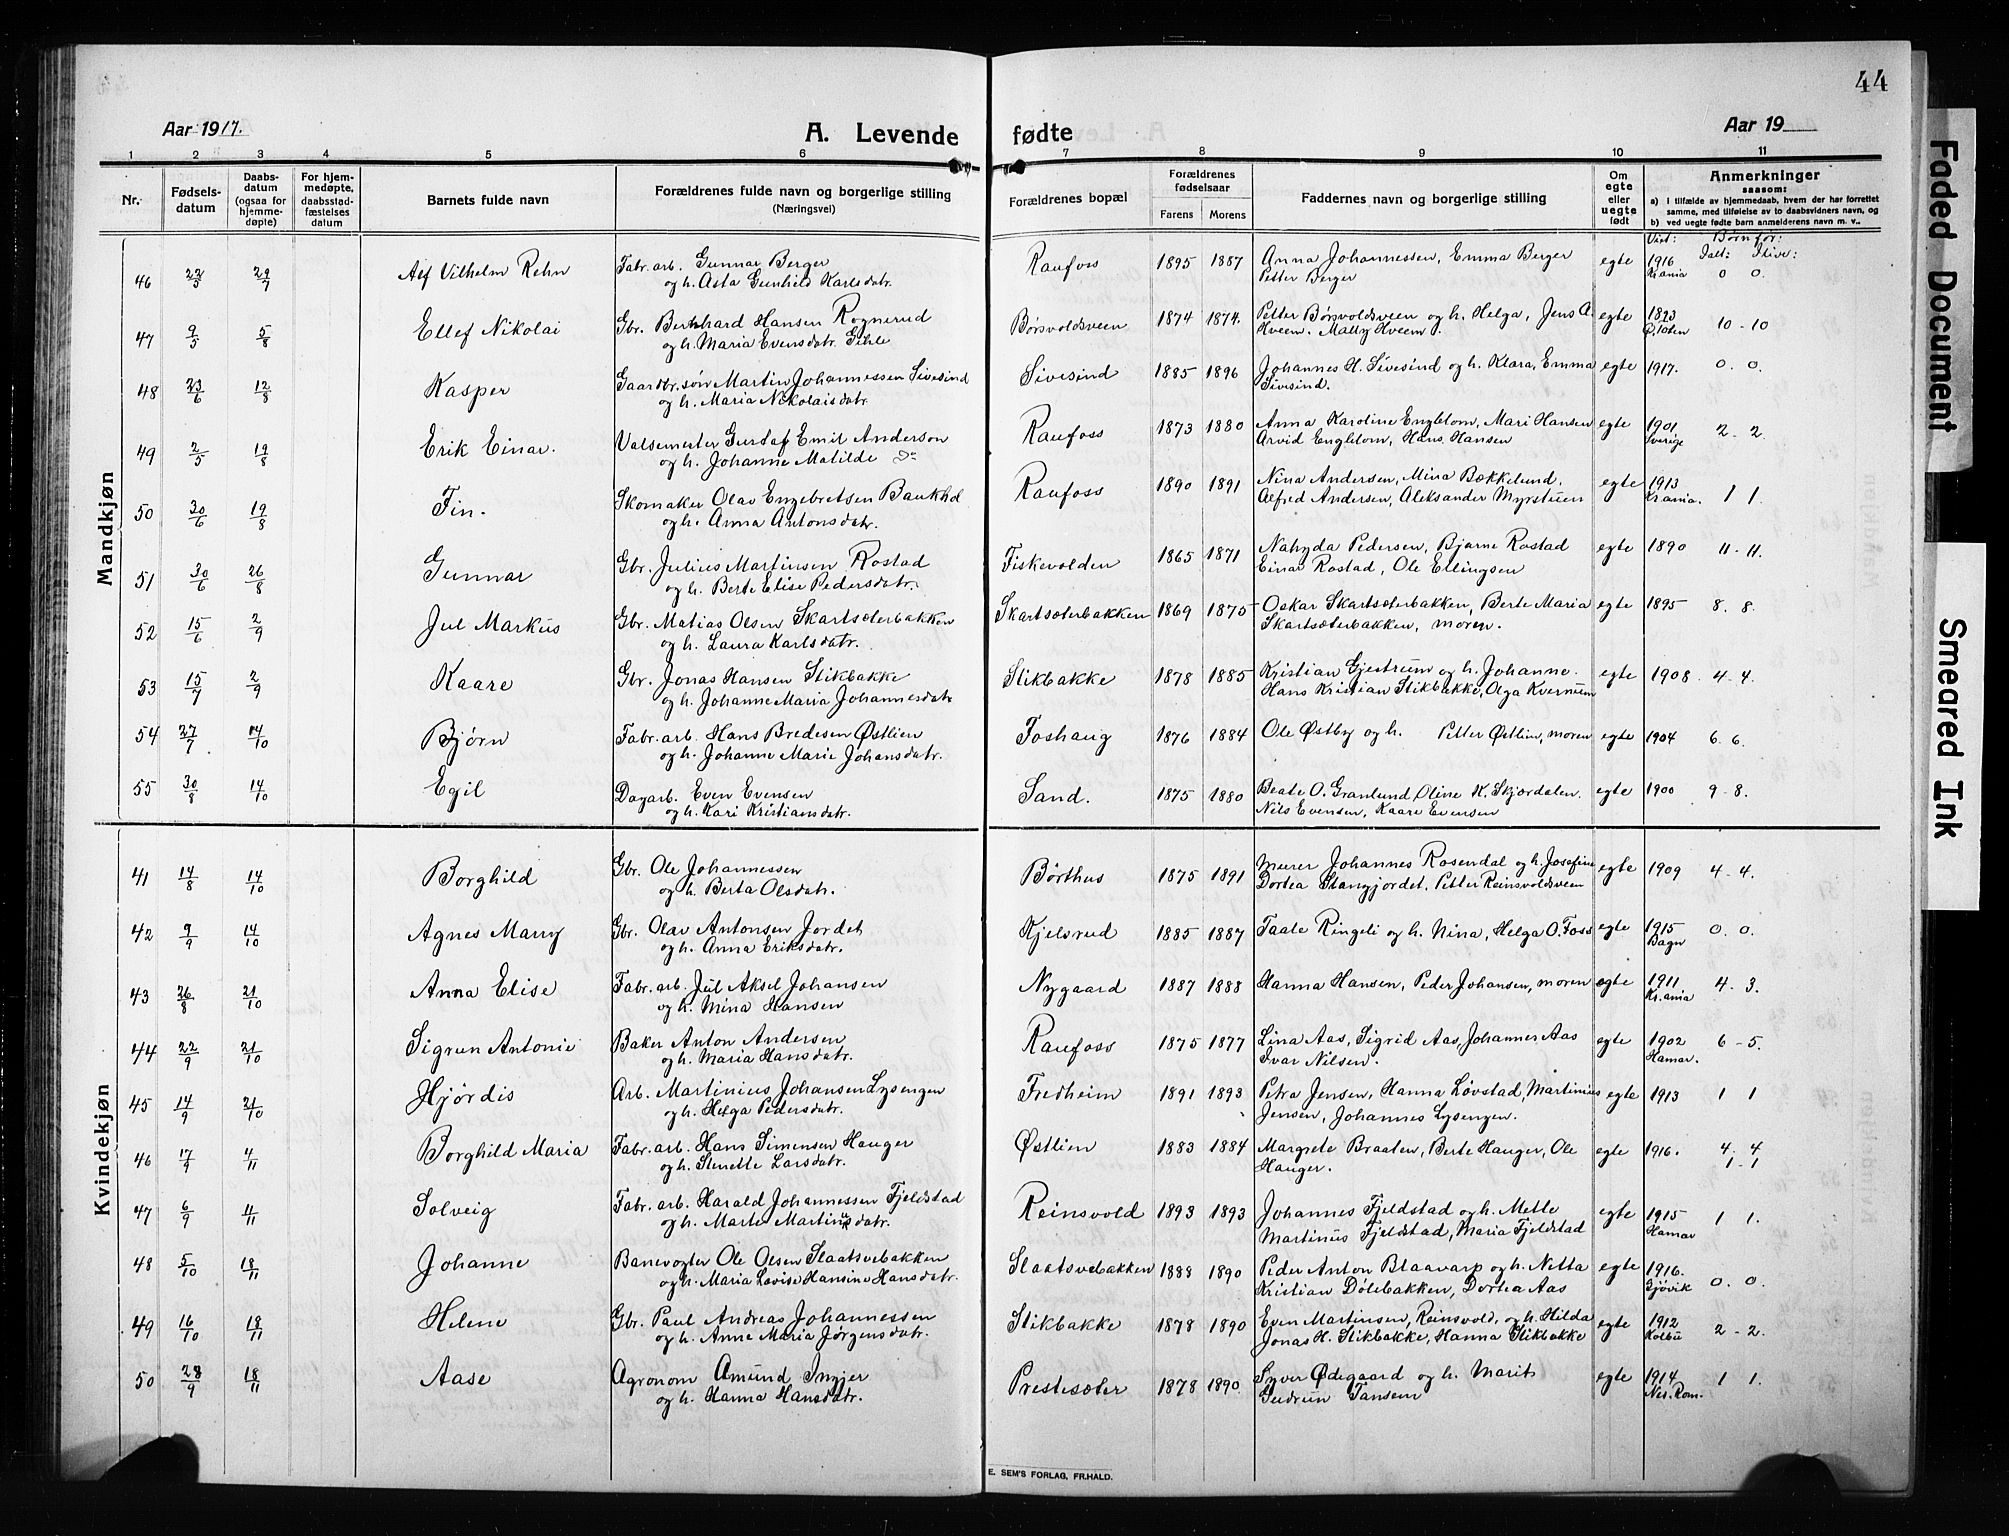 44
Aar 1917.
A. Levende fødte
Aar 19
1 2 3 4 5 6 7 8 9 10 11
Nr.
Fødsels-
datum
Daabs-
datum
(ogsaa for
hjemme-
døpte)
For hjem-
medøpte,
daabsstad-
fæstelses
datum
Barnets fulde navn
Forældrenes fulde navn og borgerlige stilling
(Næringsvei)
Forældrenes bopæl
Forældrenes
fødselsaar
Farens Morens
Faddernes navn og borgerlige stilling
Om
egte
eller
uegte
født
Anmerkninger
saasom:
a) I tilfælde av hjemmedaab, hvem der har forrettet
samme, med tilføielse av to daabsvidners navn, og
b) ved uegte fødte barn anmelderens navn m. v..
Viet: Børn før:
Ialt: Ilive:
Mandkjøn
46 23/5 29/7 Alf Vilhelm Rehn Fabr. arb. Gunnar Berger Raufoss 1895 1887 Anna Johannessen, Emma Berger egte 1916
og h. Asta Gunhild Karlsdatr. Petter Berger Kr.ania 0 0.
47 9/5 5/8 Ellef Nikolai Gbr. Bernhard Hansen Rognerud Børsvoldsveen 1874 1874. Petter Børsvoldsveen og h. Helga, Jens A. egte 1893 10 - 10
og h. Maria Evensdatr. Hveem. Mally Hveem. Ø. Toten
48 23/6 12/8 Kasper Gaardbr. søn Martin Johannessen Sivesind Sivesind 1885 1896 Johannes H. Sivesind og h. Klara, Emma egte 1917. 0. 0.
og h. Maria Nikolaisdatr. Sivesind.
49 2/5 19/8 Erik Einar. Valsemester Gustaf Emil Anderson Raufoss 1873 1880 Anna Karoline Engblom, Mari Hansen egte 1901. 2 - 2.
og h. Johanne Matilde Do Arvid Engblom, Hans Hansen Sverige
50 30/6 19/8 Fin. Skomaker Olav Engebretsen Baukhol Raufoss 1890 1891 Nina Andersen, Mina Bækkelund. egte 1913
og h. Anna Antonsdatr. Alfred Andersen, Aleksander Myrstuen Kr.ania. 1 1.
51 30/6 26/8 Gunnar Gbr. Julius Martinsen Rostad Fiskevolden 1865 1871 Nahyda Pedersen, Bjarne Rostad egte 1890 11 - 11.
og h. Berte Elise Pedersdatr. Einar Rostad, Ole Ellingsen
52 15/6 2/9 Jul Markus Gbr. Matias Olsen Skartsæterbakken Skartsæterbakken 1869 1875 Oskar Skartsæterbakken, Berte Maria egte 1895 8. 8.
og h. Laura Karlsdatr. Skartsæterbakken, moren.
53 15/7 2/9 Kaare Gbr. Jonas Hansen Stikbakke Stikbakke 1878 1885 Kristian Gjestrum og h. Johanne. egte 1908. 4 - 4.
og h. Johanne Maria Johannesdatr Hans Kristian Stikbakke, Olga Kvernum
54 27/7 14/10 Bjørn Fabr. arb. Hans Bredesen Østlien Foshaug 1876 1884 Ole Østby og h. Petter Østlien, moren egte 1904 6. 6.
og h. Johanne Marie Johansdatr.
55 30/8 14/10 Egil Dagarb. Even Evensen Sand. 1875 1880 Beate O. Granlund, Oline K. Skjærdalen. egte 1900 9 - 8.
og h. Kari Kristiansdatr. Nils Evensen, Kaare Evensen
Kvindekjøn
41 14/8 14/10 Borghild Gbr. Ole Johannessen Børthus 1875 1891 Murer Johannes Rosendal og h. Josefine egte 1909 4 - 4.
og h. Berta Olsdatr. Dortea Stangjordet, Petter Reinsvoldsveen
42 9/9 14/10 Agnes Marry Gbr. Olav Antonsen Jordet Kjelsrud 1885 1887 Taale Ringeli og h. Nina, Helga O. Foss egte 1915 0. 0.
og h. Anna Eriksdatr. Bagn
43 26/8 21/10 Anna Elise Fabr. arb. Jul Aksel Johansen Nygaard 1887 1888 Hanna Hansen, Peder Johansen, moren egte 1911 4 - 3.
og h. Mina Hansen Kr.ania
44 22/9 21/10 Sigrun Antonie Baker Anton Andersen Raufoss 1875 1877 Lina Aas, Sigrid Aas, Johannes Aas egte 1902 6 - 5.
og h. Maria Hansdatr. Ivar Nilsen. Hamar.
45 14/9 21/10 Hjørdis Arb. Martinius Johansen Lysengen Fredheim 1891 1893 Petra Jensen, Hanna Løvstad, Martinius egte 1913 1 1
og h. Helga Pedersdatr. Jensen, Johannes Lysengen.
46 17/9 4/11 Borghild Maria Fabr. arb. Hans Simensen Hauger Østlien 1883 1884 Margrete Braaten, Berte Hauger, Ole egte 1916. 4. 4
og h. Stenette Larsdatr. Hauger. 1 - 1
47 6/9 4/11 Solveig Fabr. arb. Harald Johannessen Fjeldstad Reinsvold 1893 1893 Johannes Fjeldstad og h. Mette egte 1915 1 1.
og h. Marte Martinusdatr. Martinus Fjeldstad, Maria Fjeldstad Hamar
48 5/10 18/11 Johanne Banevogter Ole Olsen Slaatsvebakken Slaatsvebakken 1888 1890 Peder Anton Blaavarp og h. Netta egte 1916.
og h. Maria Lovise Hansine Hansdatr. Kristian Dølebakken, Dortea Aas Gjøvik 0. 0.
49 16/10 18/11 Helene Gbr. Paul Andreas Johannessen Stikbakke 1878 1890 Even Martinsen, Reinsvold, og h. Hilda egte 1912 2 - 2.
og h. Anne Maria Jørgensdatr. Jonas H. Stikbakke, Hanna Stikbakke Kolbu
50 28/9 18/11 Aase Agronom Amund Ingjer Prestesæter 1878 1890 Syver Ødegaard og h. Marit egte 1914 1 1.
og h. Hanna Hansdatr. Gudrun Tansem Nes. Rom.
E. SEM'S FORLAG, FR.HALD.
Faded Document
Smeared Ink